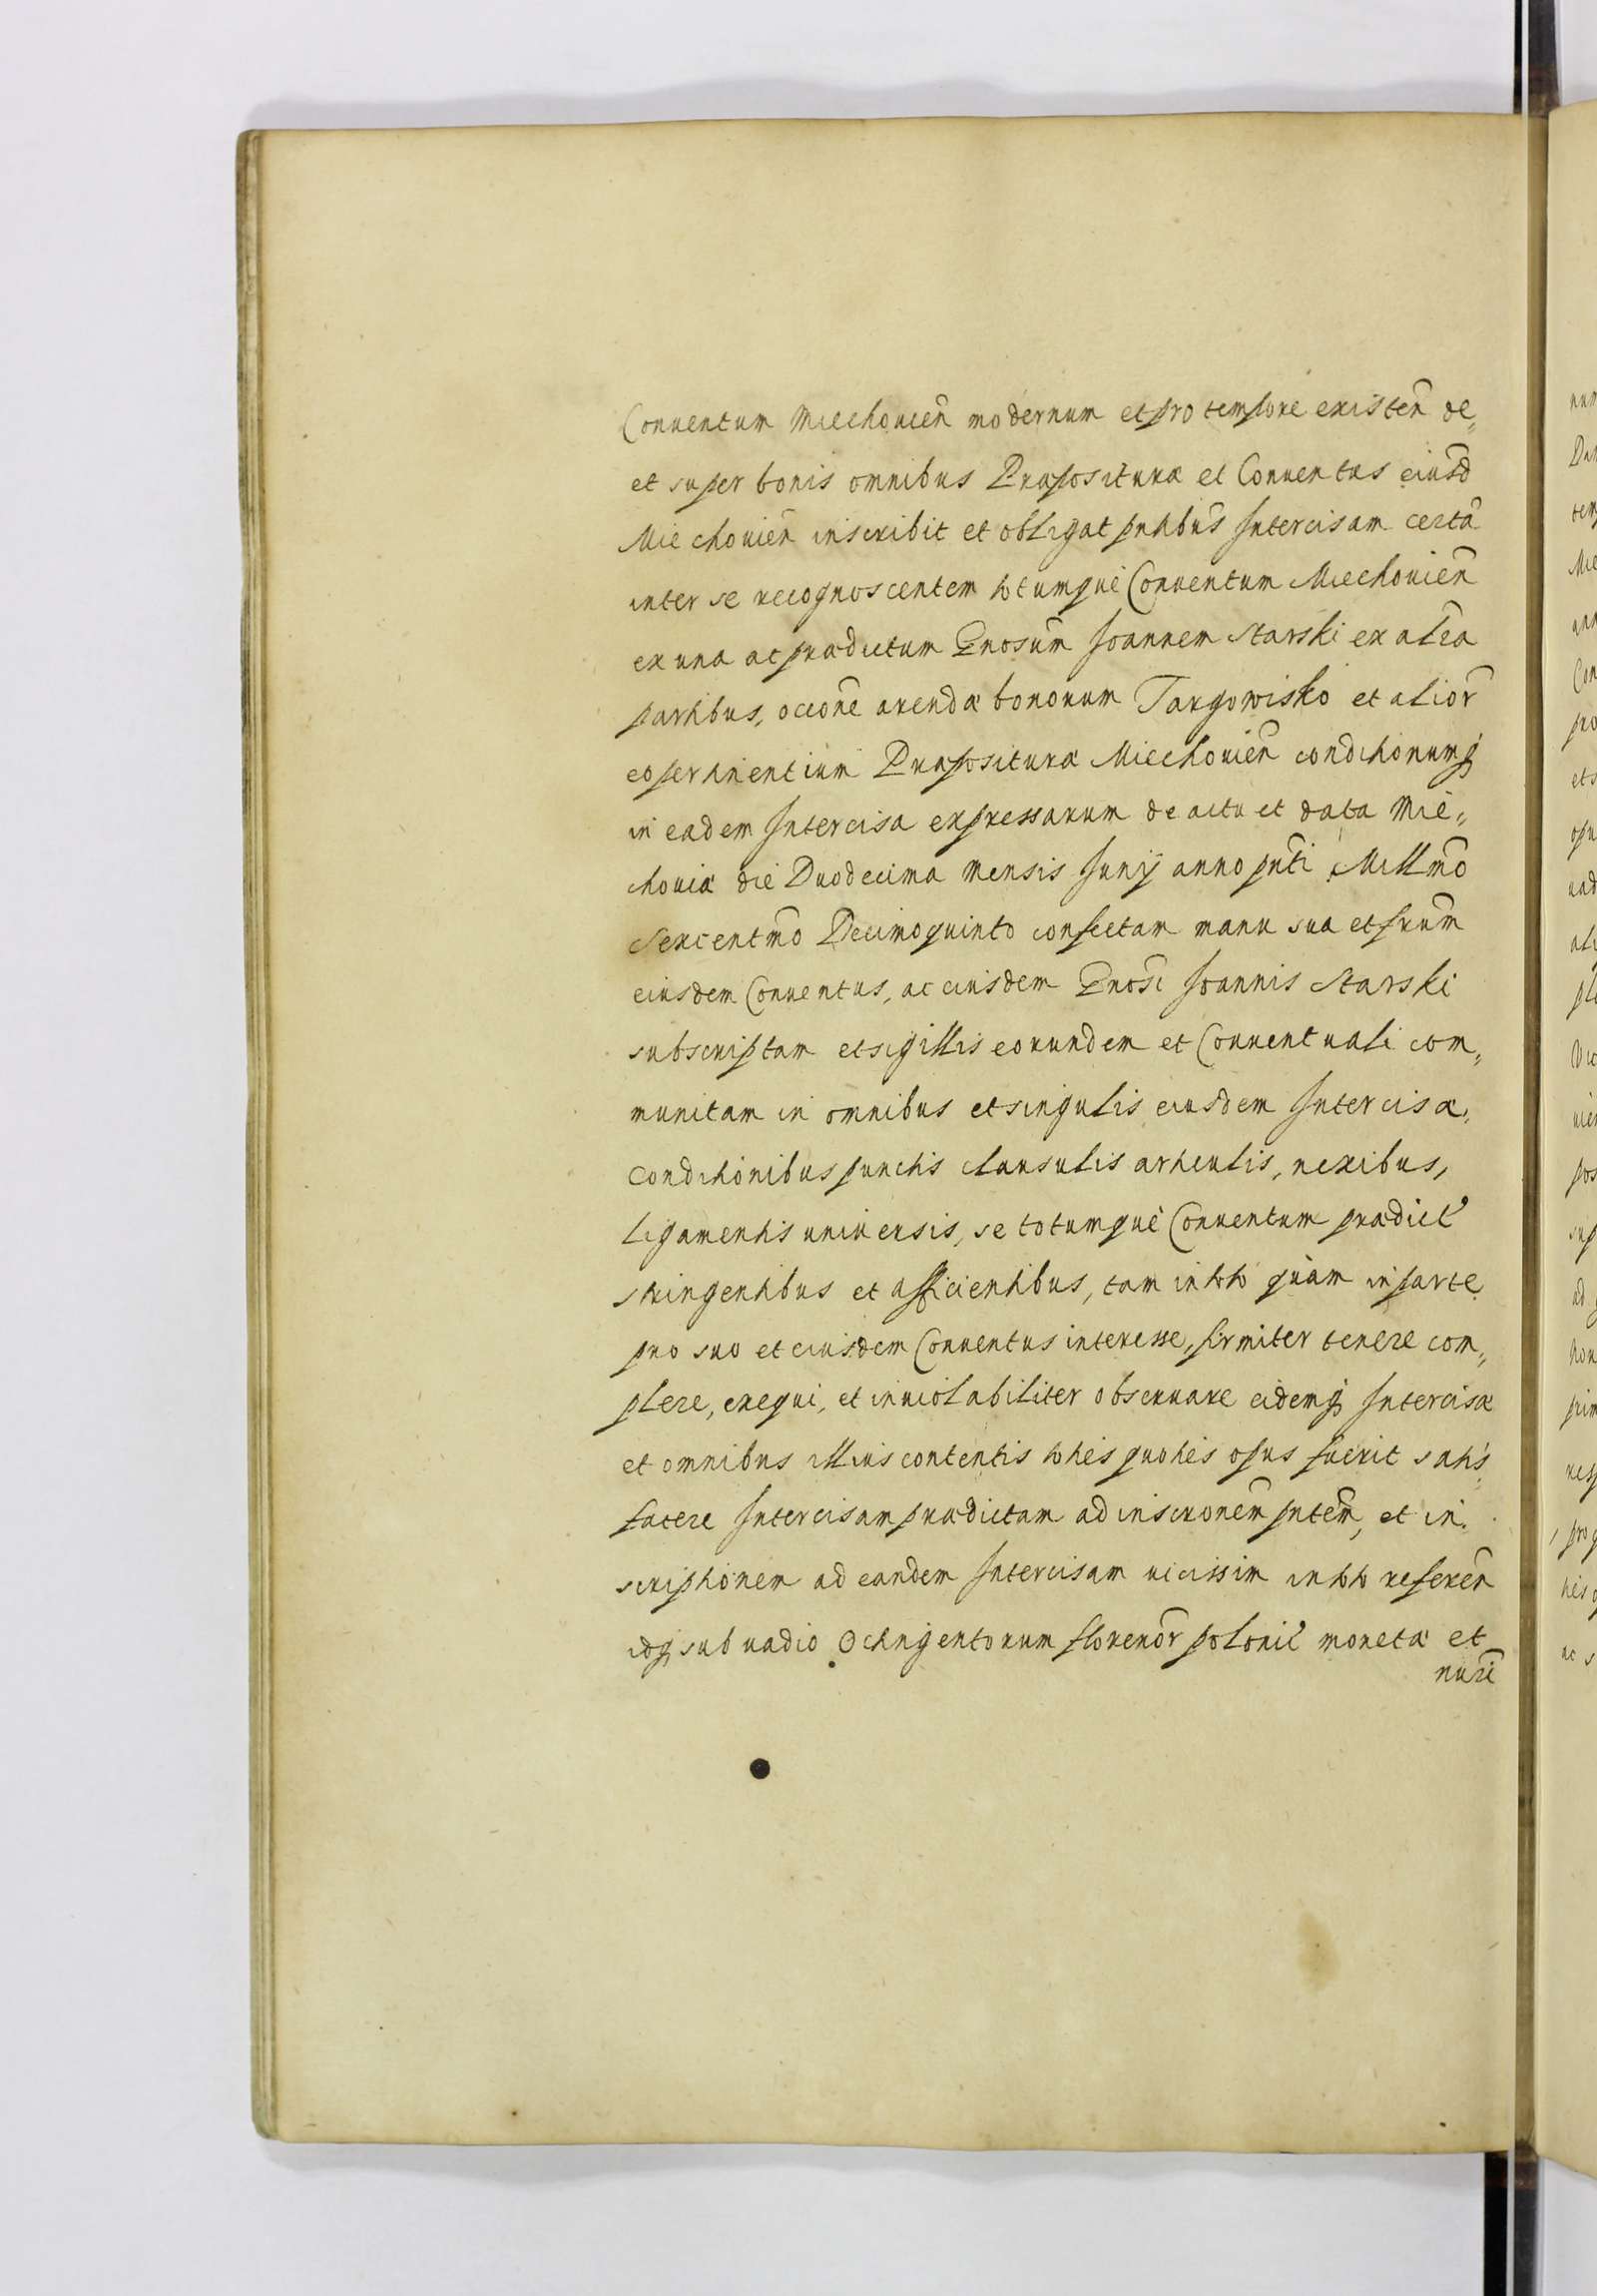 Conuentum Miechouien̄ modernum et pro tempore existen̄ de„
et super bonis omnibus Præpositura et Conuentus eiusd̄
Miechouien̄ inscribit et obligat pn̄tibus Intercisam certā
inter se recognoscentem totumque Conuentum Miechouien̄
ex una ac prædictum Gnosum̄ Joannem Starski ex alt̄a
partibus, occōne arendæ bonorum Targowisko et alior̄
eo pertinentium Præposituræ Miechouien̄ conditionumq̢
in eadem Intercisa expressarum de actu et data Mie„
chouiæ die Duodecima Mensis Junij anno pn̄ti Millmō
Sexcentmō Decimoquinto confectam manu sua et frum̄
eiusdem Conuentus, ac eiusdem Gnosi Joannis Starski
subscriptam et sigillis eorundem et Conuentuali com„
munitam in omnibus et singulis eiusdem Intercisæ,
conditionibus punctis clausulis articulis, nexibus,
ligamentis uniuersis, se totumque Conuentum prædict
stringentibus et afficientibus, tam in toto quam in parte
pro suo et eiusdem Conuentus interesse, firmiter tenere com„
plere, exequi, et inuiolabiliter obseruare eidemq̢ Intercisæ
et omnibus illius contentis toties quoties opus fuerit satis
facere Intercisam prædictam ad inscronem̄ pntem̄, et in.
scriptionem ad eandem Intercisam uicissim in toto referen̄
idq̢ sub uadio Octingentorum florenor̄ polonil monetæ et
nūri